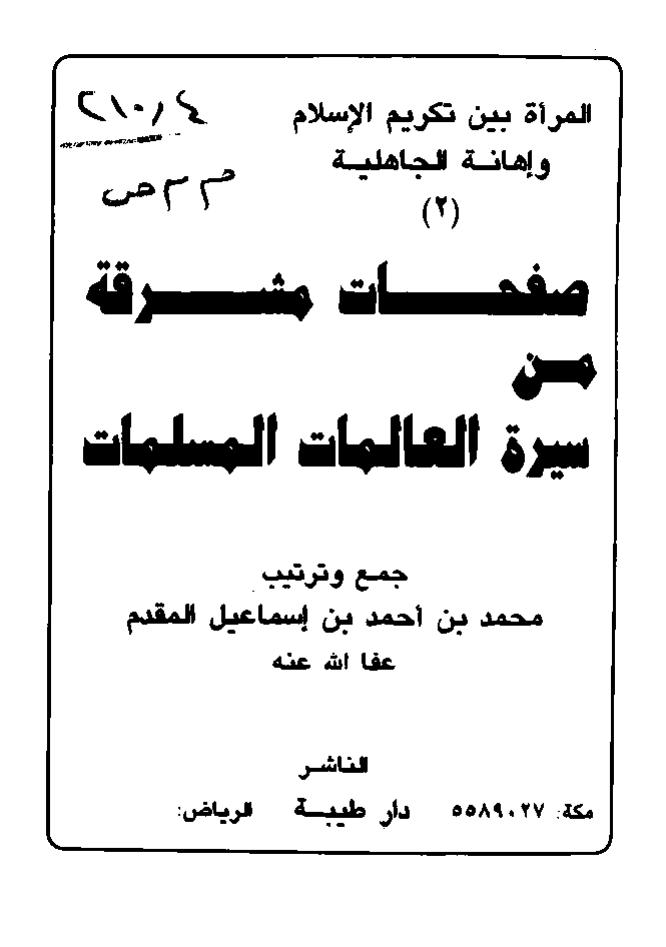 المرأة بين تكريم الإسلام
وإهانة الجاهلية
(٢)
٢١٠٫٤
م م ص
صفحات مشرقة
من
سيرة العالمات المسلمات
جمع وترتيب
محمد بن أحمد بن إسماعيل المقدم
عفا الله عنه
الناشر
مكة: ٥٥٨٩٠٢٧ دار طيبة الرياض: